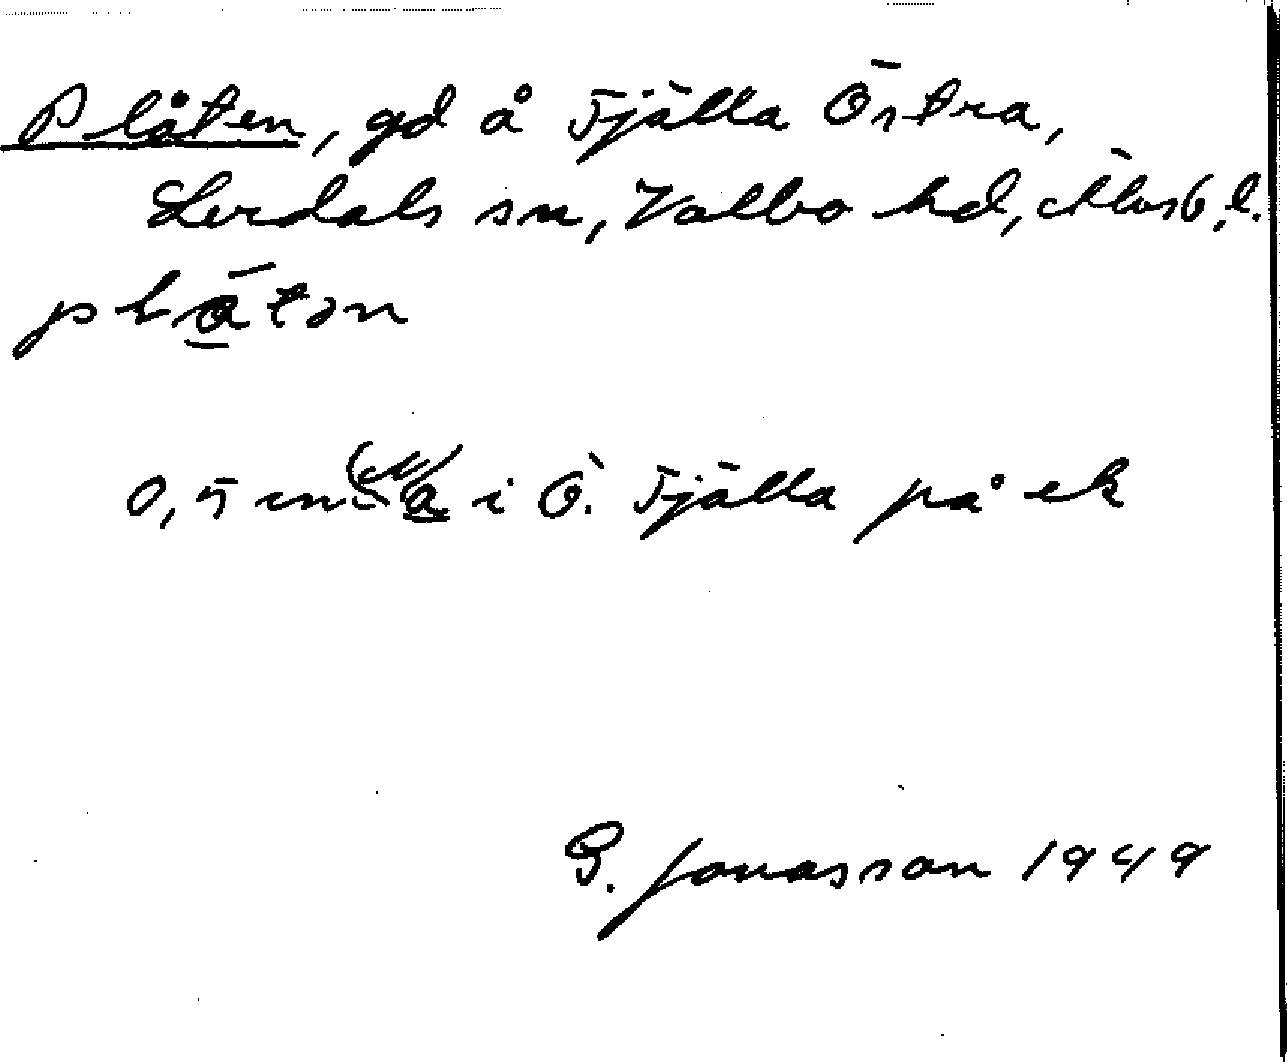 Plåten, gd å Fjälla Östra,
Lerdals sn, Valbo hd, Älvsb. l.
plå̱̄tən
0,5 i Ö. Fjälla på ek
G. Jonasson 1949